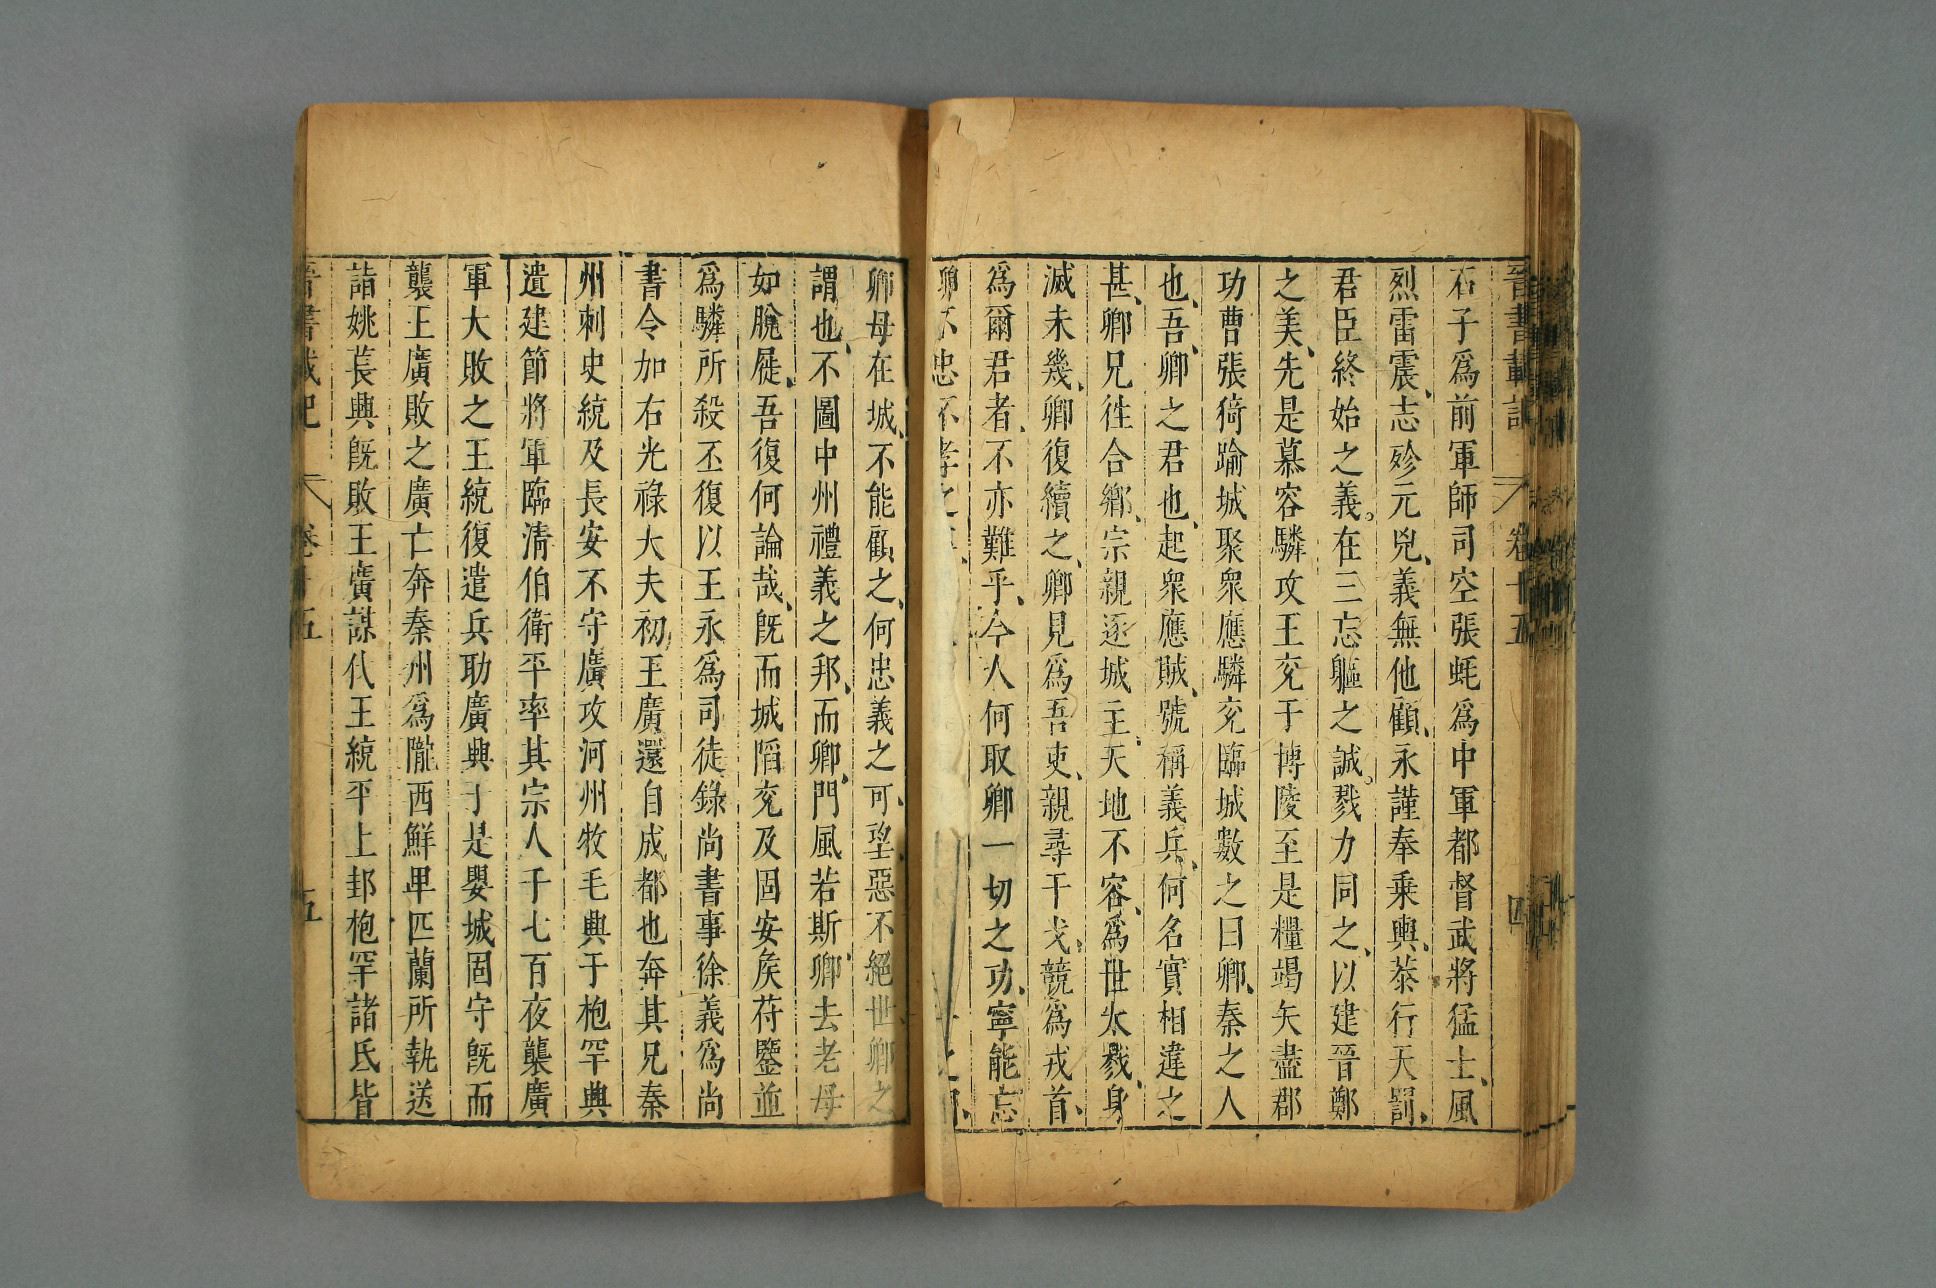 晉書載記 卷十五 四
石子爲前軍師司空張蚝爲中軍都督武將猛士、風
烈雷震、志殄元兇、義無他顧、永謹奉乗輿、恭行天罰、
君臣終始之義。在三忘軀之誠。戮力同之、以建晉鄭
之美、先是慕容驎攻王兗于博陵至是糧竭矢盡郡
功曹張猗踰城聚衆應驎兗臨城數之曰卿、秦之人
也、吾、卿之君也、起衆應賊、號稱義兵、何名實相違之
甚、卿兄徃合鄉、宗親逐城主、天地不容、爲世大戮、身
滅未幾、卿復續之、卿見爲吾吏、親尋干戈、競爲戎首、
爲爾君者、不亦難乎、今人何取卿一切之功、寧能忘
卿不忠不孝之事、
卿母在城、不能顧之、何忠義之可望惡不絕世卿之
謂也、不圖中州禮義之邦、而卿、門風若斯、卿去老母
如脫屣、吾復何論哉、旣而城陷兗及固安侯苻鑒並
爲驎所殺丕復以王永爲司徒錄尚書事徐義爲尚
書令加右光祿大夫初王廣還自成都也奔其兄秦
州刺史統及長安不守廣攻河州牧毛興于枹罕興
遣建節將軍臨淸伯衛平率其宗人千七百夜襲廣
軍大敗之王統復遣兵助廣興于是嬰城固守旣而
襲王廣敗之廣亡奔秦州爲隴西鮮卑匹蘭所執送
詣姚萇興旣敗王廣謀伐王統平上邽枹罕諸氐皆
晉書載記 卷十五 五